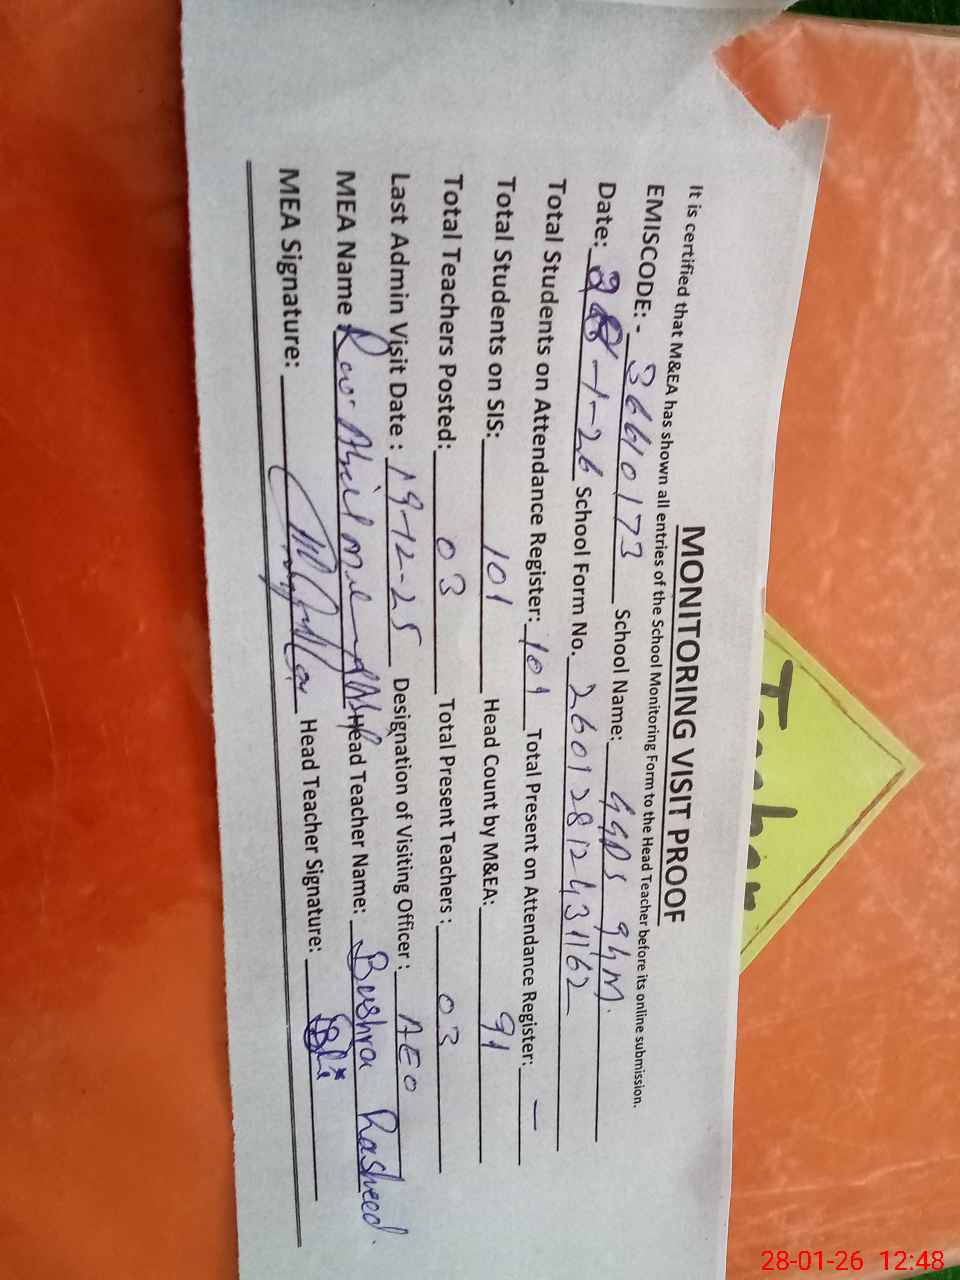 MONITORING VISIT PROOF
It is certified that M&EA has shown all entries of the School Monitoring Form to the Head Teacher before its online submission.
EMISCODE: - 36640173 School Name: GGPS 94M.
Date: 28-1-26 School Form No. 26012812431162
Total Students on Attendance Register: 101 Total Present on Attendance Register: —
Total Students on SIS: 101 Head Count by M&EA: 91
Total Teachers Posted: 03 Total Present Teachers : 03
Last Admin Visit Date : 19-12-25 Designation of Visiting Officer : AEO
MEA Name : Head Teacher Name: Bushra Rasheed.
MEA Signature: Head Teacher Signature:
Teacher
28-01-26 12:48